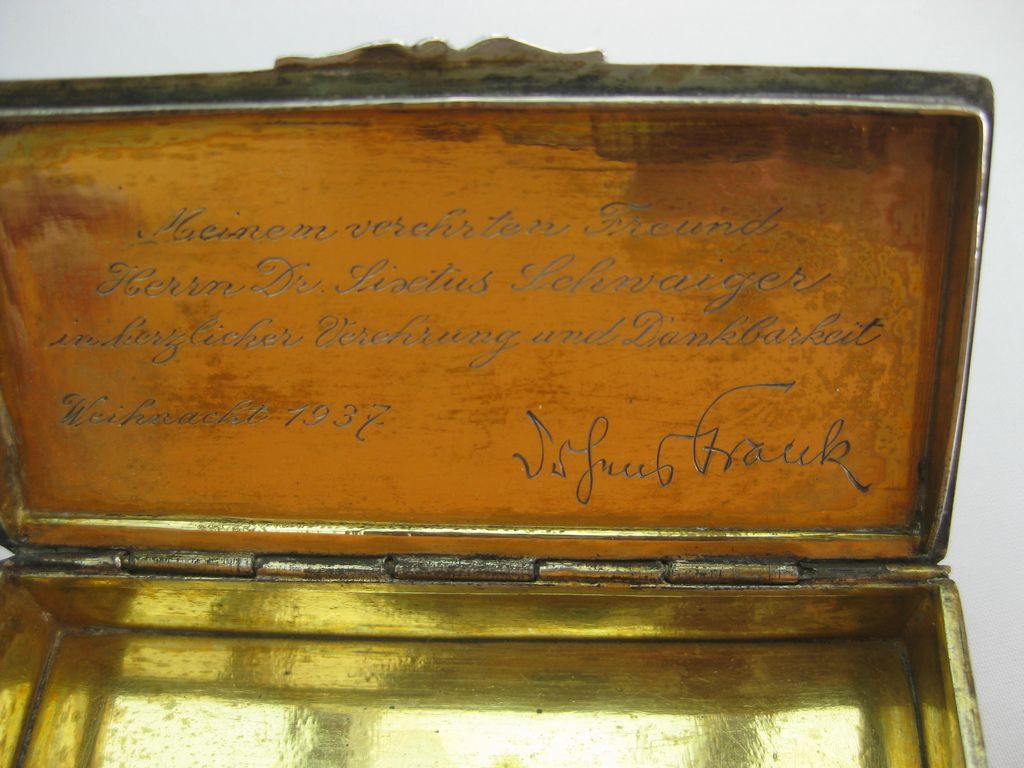 Meinem verehrten Freund
Herrn Dr. Sixtus Schwaiger
in herzlicher Verehrung und Dankbarkeit
Weihnacht 1937.
Dr Hans Frank